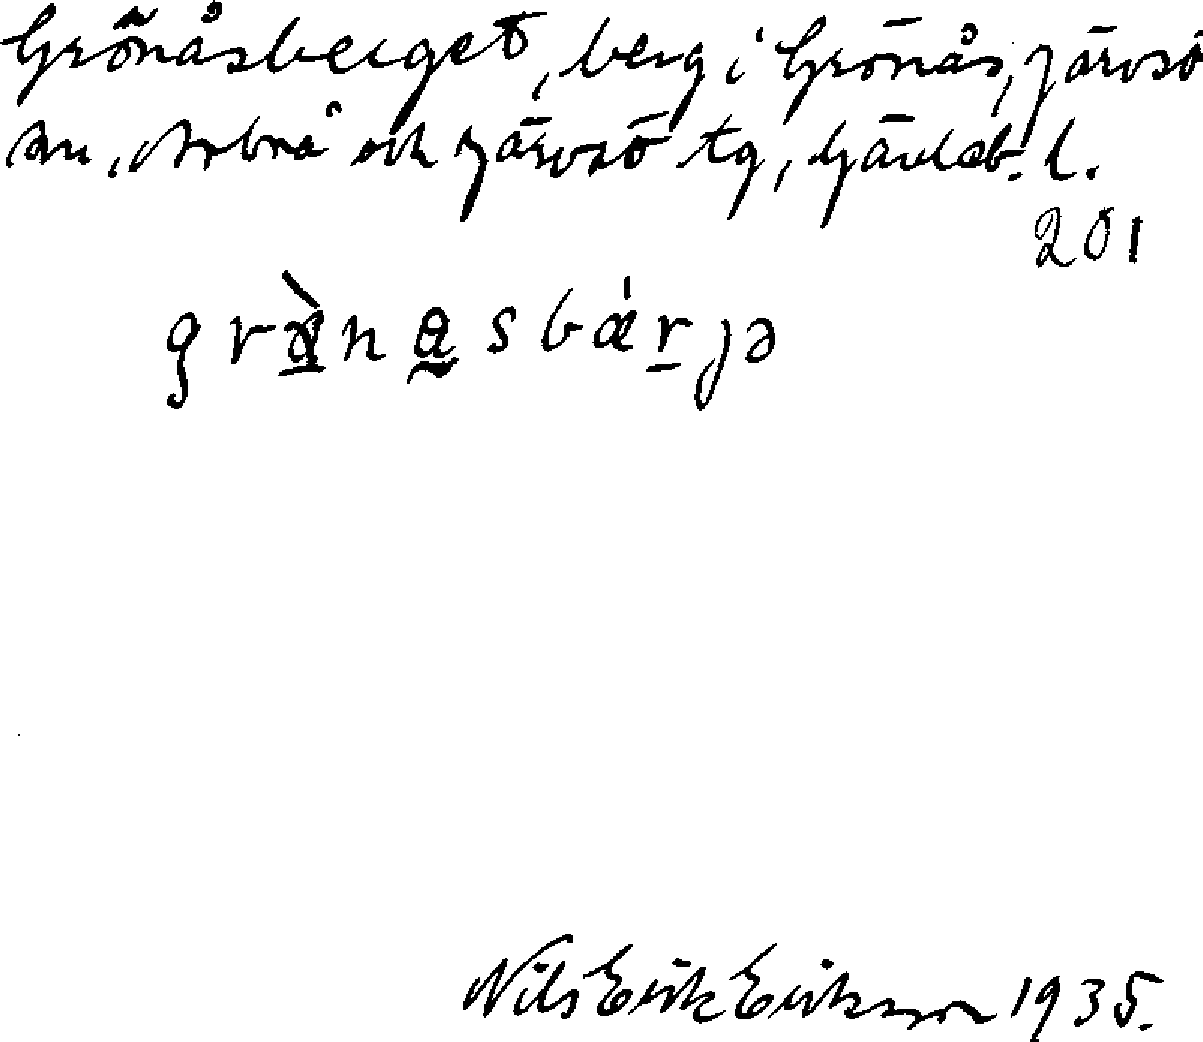 Grönåsberget, berg i Grönås, Järvsö
sn, Arbrå och Järvsö tg, Gävleb. l.
201
grö̀nasbǽrjə
Nils Erik Eriksson 1935.